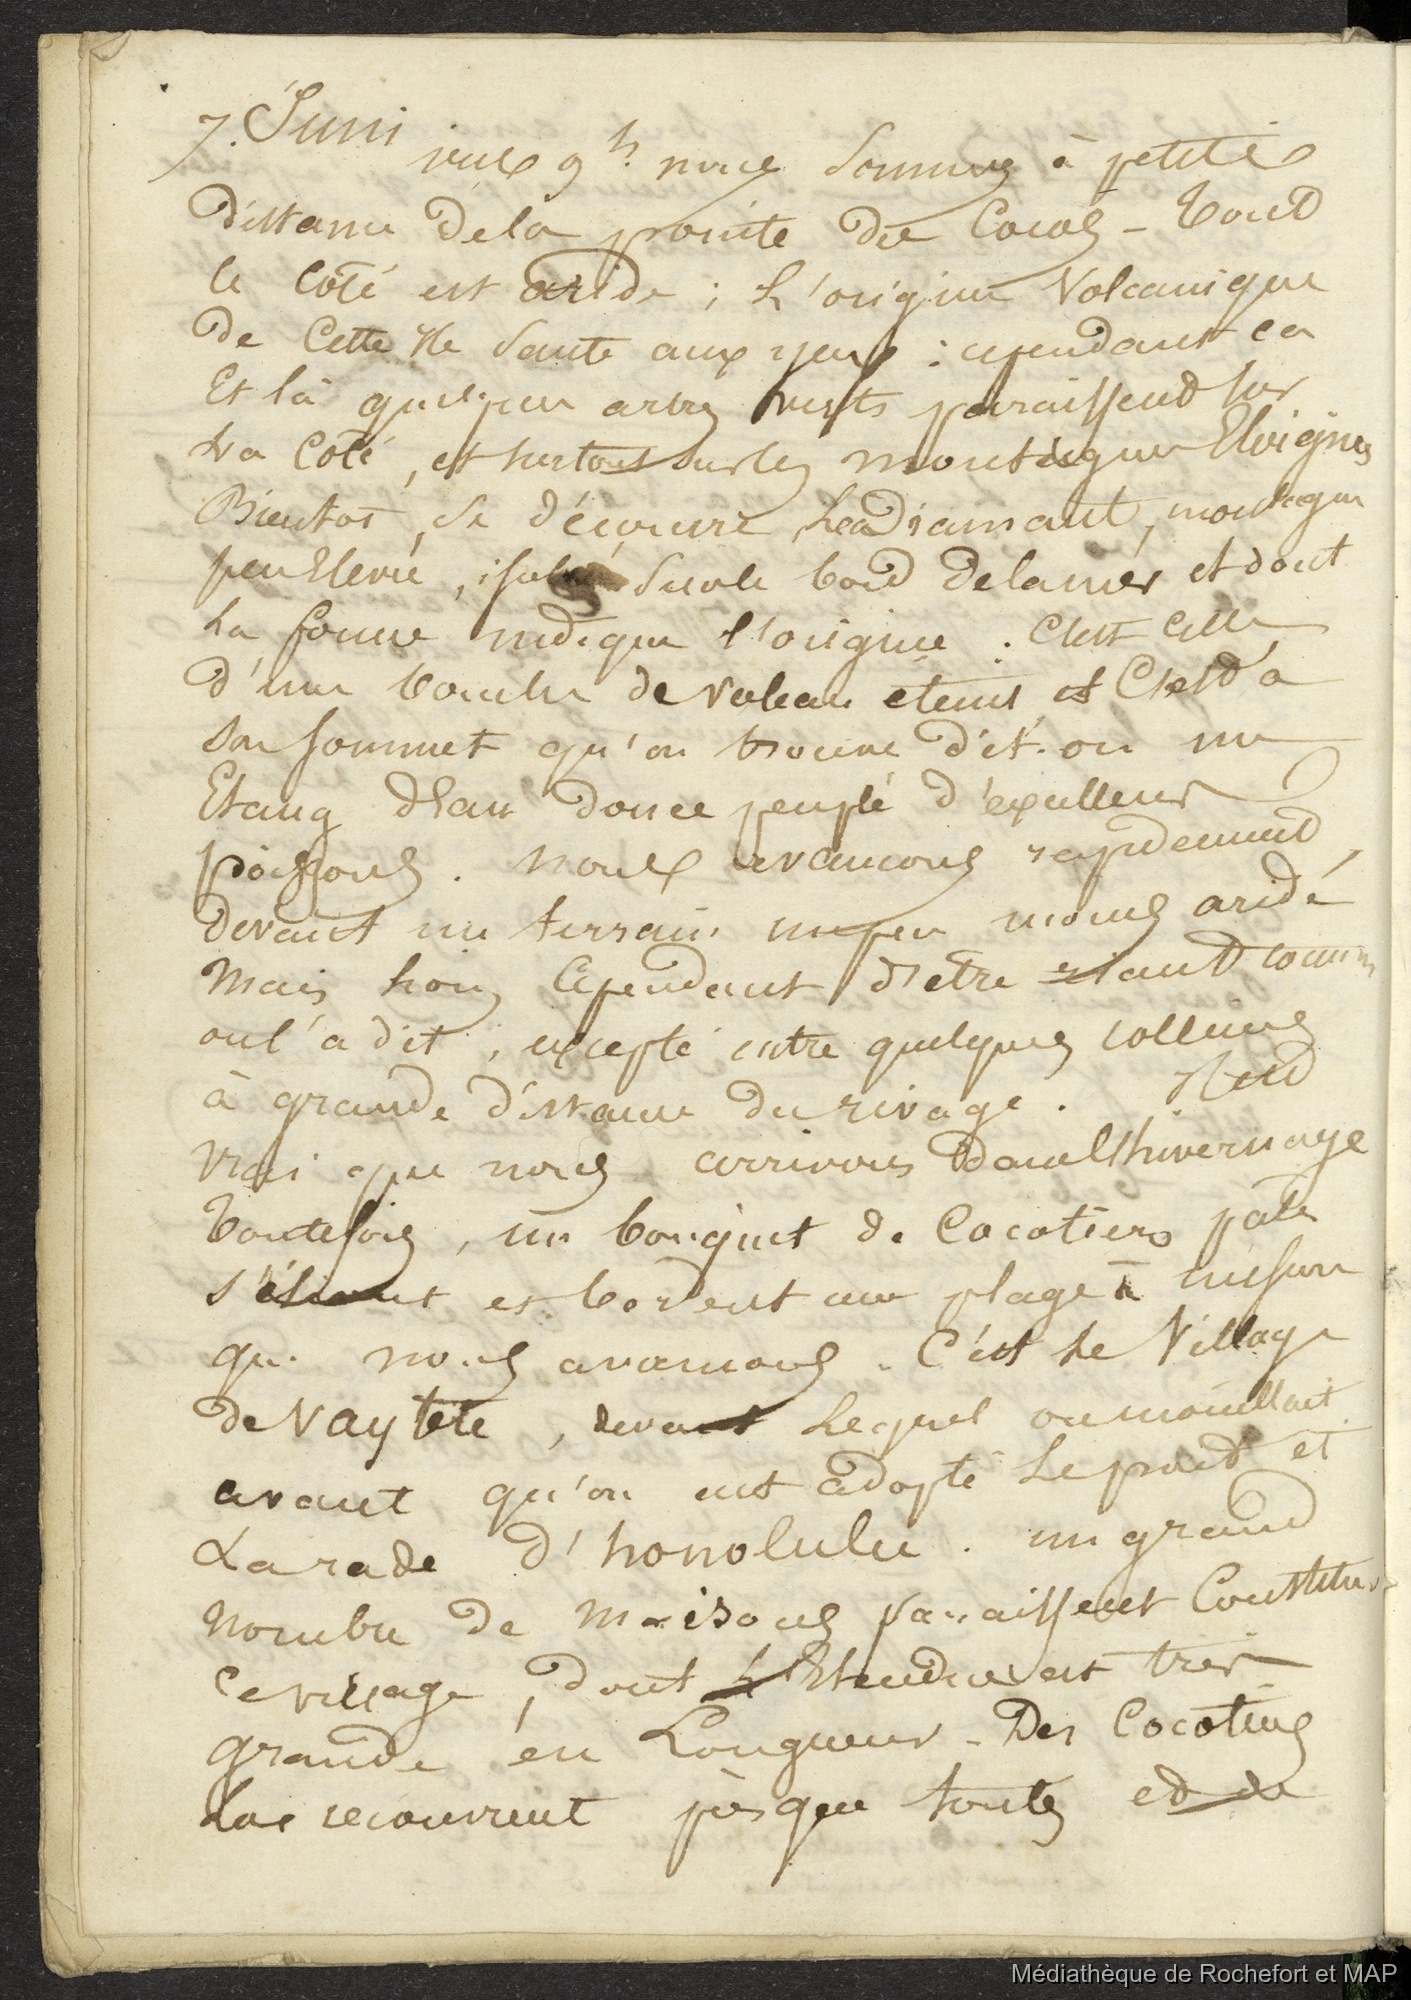 7. Juin
vers 9h. nous sommes à petite
distance de la pointe de Cocos - tout
le côté est aride ; L'origine Volcanique
de Cette Ile saute aux yeux : cependant ca
Et là quelques arbres verts paraissent sur
La Côte, et surtout sur les montagnes Eloignées
Bientot, se découvre Le diamant, montagne
peu Elevée, isolée sur le bord de la mer et dont
La forme indique l'origine : C'est Celle
d'une bouche de volcan eteint, et C'est à
son sommet qu'on trouve dit-on un
Etang d'Eau douce peuplé d'excellens
poissons. nous avancons rapidement,
devant un terrain un peu moins aride
Mais loin Cependant d'etre riant comme
on l'a dit, excepté entre quelques collines
à grande distance du rivage. Il est
vrai que nous arrivons dans l'hivernage
Toutefois, un bouquet de Cocotiers
s'élevent et bordent une plage à mesure
que nous avancons. C'est Le Village
de Vaytété, devant Lequel on mouillait
avant qu'on eut adopté Le port et
La rade d'honolulu. un grand
nombre de maisons paraissent Constituer
Ce village, dont L'Etendue est très
grande en Longueur - Des Cocotiers
Les recouvrent presque toutes et de
Médiathèque de Rochefort et MAP